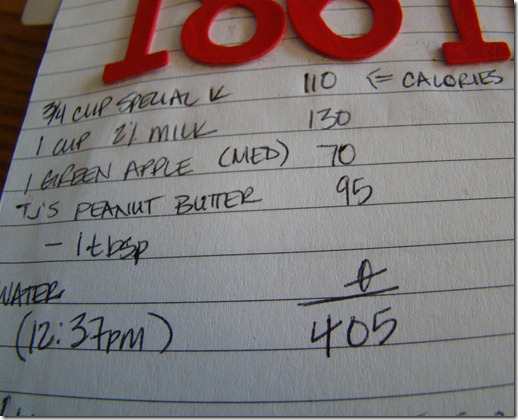 1861
3/4 CUP SPECIAL K 110 <= CALORIES
1 CUP 2% MILK 130
1 GREEN APPLE (MED) 70
TJ'S PEANUT BUTTER 95
- 1 tbsp
WATER 0
(12:37pm) 405